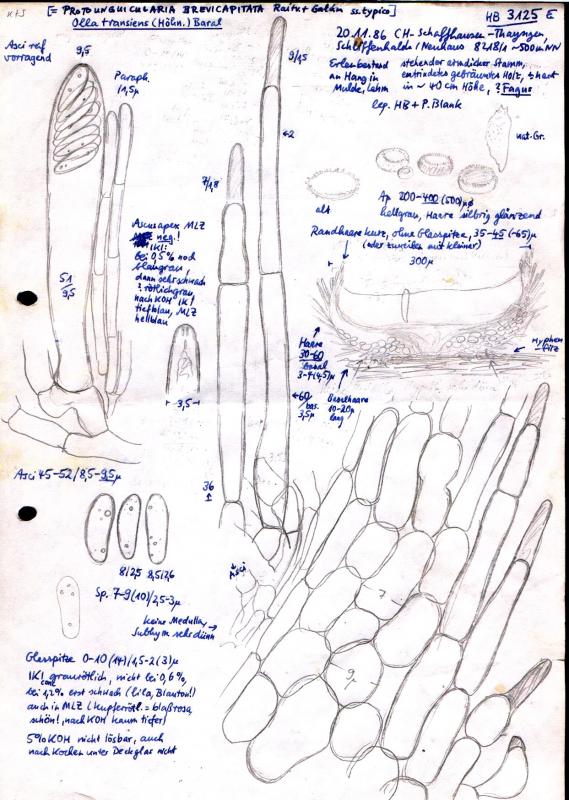 [= PROTOUNGUICULARIA BREVICAPITATA Raitv. & Galán ss. typico]
Olla transiens (Höhn.) Baral
HB 3125
20.11.86 CH-Schaffhausen-Thayngen,
Neuhaus 8218/1 ~500m NN
Asci reif
vorragend
9,5
Paraph.
1,5µ
9/1,5
←2
7/1,8
Erlenbestand
an Hang in
Mulde, Lehm
stehender Stamm,
entrindetes gebräuntes Holz, ± hart
in ~ 40 cm Höhe, ? Fagus
leg. HB + P. Blank
nat. Gr.
alt
Ap 200-400 (500) µ
hellgrau, Haare silbrig glänzend
Randhaare kurz, ohne Glasspitze, 35-45 (-65) µ
(oder zuweilen mit kleiner)
300µ
Ascusapex MLZ
neg.!
IKI:
bei 0,5% noch
blaugrau,
dann sehr schwach
? rötlichgrau
nach KOH IKI
tiefblau, MLZ
hellblau
51
9,5
3,5
Haare
30-60
basal
3-4 (4,5) µ
←60
bas.
3,5µ
Basalhaare
10-20µ
lang
Hyphen
filz
36
Asci 45-52/8,5-9,5µ
8/2,5 8,5/2,6
Sp. 7-9 (10)/2,5-3µ
Asci
keine Medulla,
Subhym sehr dünn
7
9µ
Glasspitze 0-10 (14)/1,5-2 (3) µ
IKI conc graurötlich, nicht bei 0,6%,
bei 1,2% erst schwach (lila, Blauton!)
auch in MLZ (kupferrötl. = blaßrosa,
schön!, nach KOH kaum tiefer)
5% KOH nicht lösbar, auch
nach Kochen unter Deckglas nicht